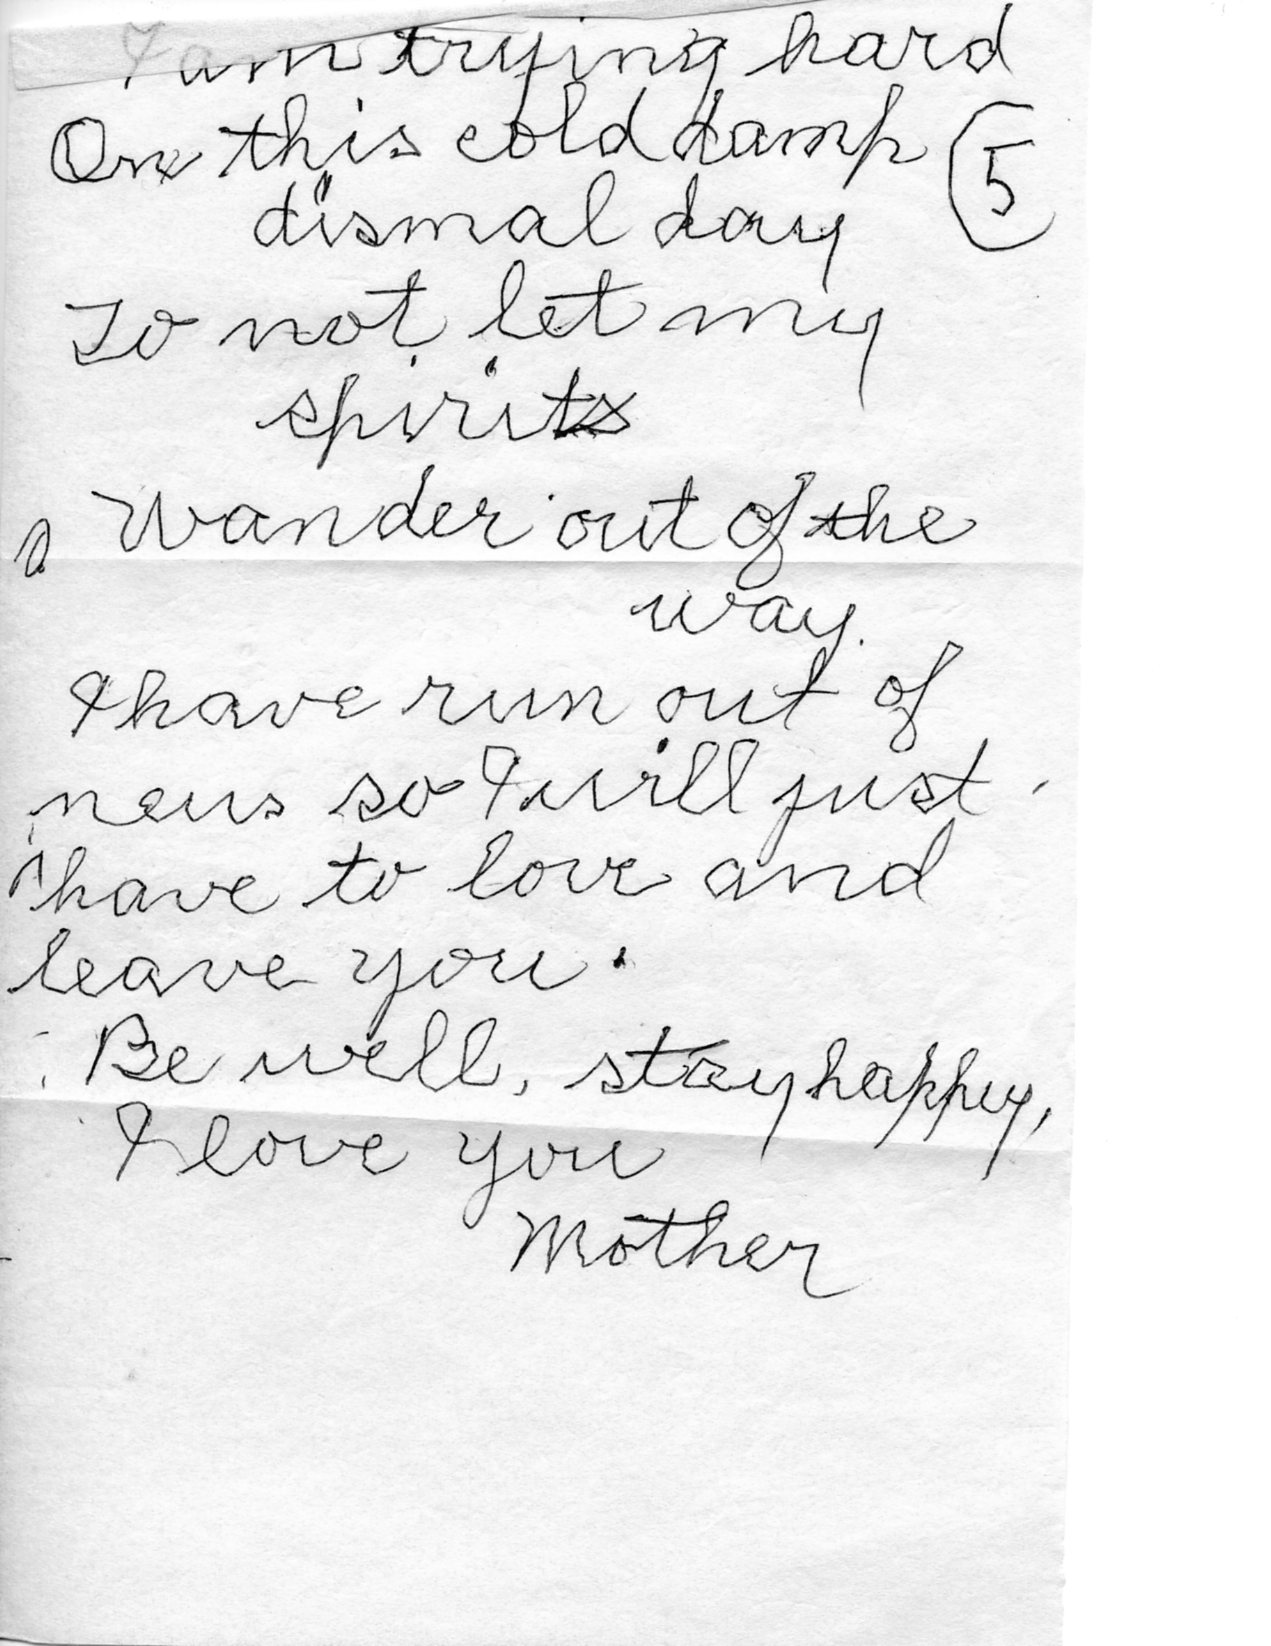 I am trying hard
On this cold damp
5
dismal day
To not let my
spirits
Wander out of the
way.
I have run out of
news so I will just
have to love and
leave you.
Be well, stay happy,
I love you
Mother